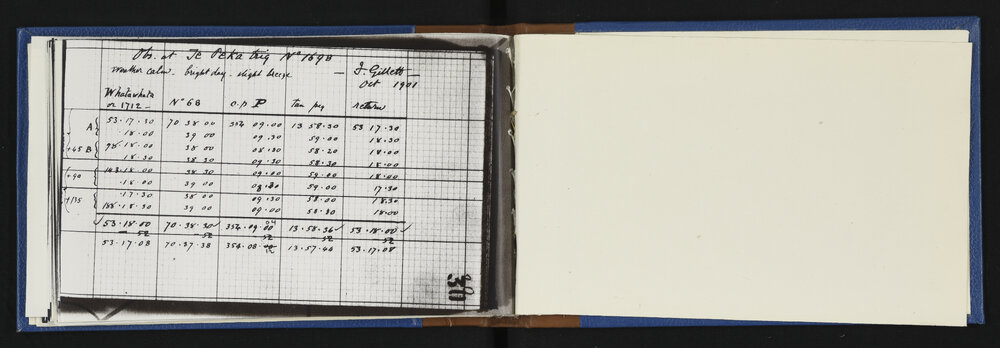 Obs. at Te Peka trig No 1698
weather calm. bright day. slight breeze — J. Gillett —
Oct 1901
Whatawhata or 1712 — No 68 o.p P tan peg return
A { 53.17.30 70 38 00 354 09.00 13 58.30 53 17.30
.18.00 39 00 09.30 59.00 18.30
+45 B { 98.18.00 38 00 08.30 58.20 18.00
18.30 38 30 09.30 58.30 18.00
+90 { 143.18.00 38 30 09.00 59.00 18.00
.18.00 39 00 59.00 17.30
+135 { .17.30 38 00 09.30 58.00 18.30
188.18.30 39 00 09.00 58.30 18.00
53.18.00 70.38.30 354.09.00 04 13.58.36 53.18.00
52 52 52 52 52
53.17.08 70.37.38 354.08.12 13.57.44 53.17.08
30